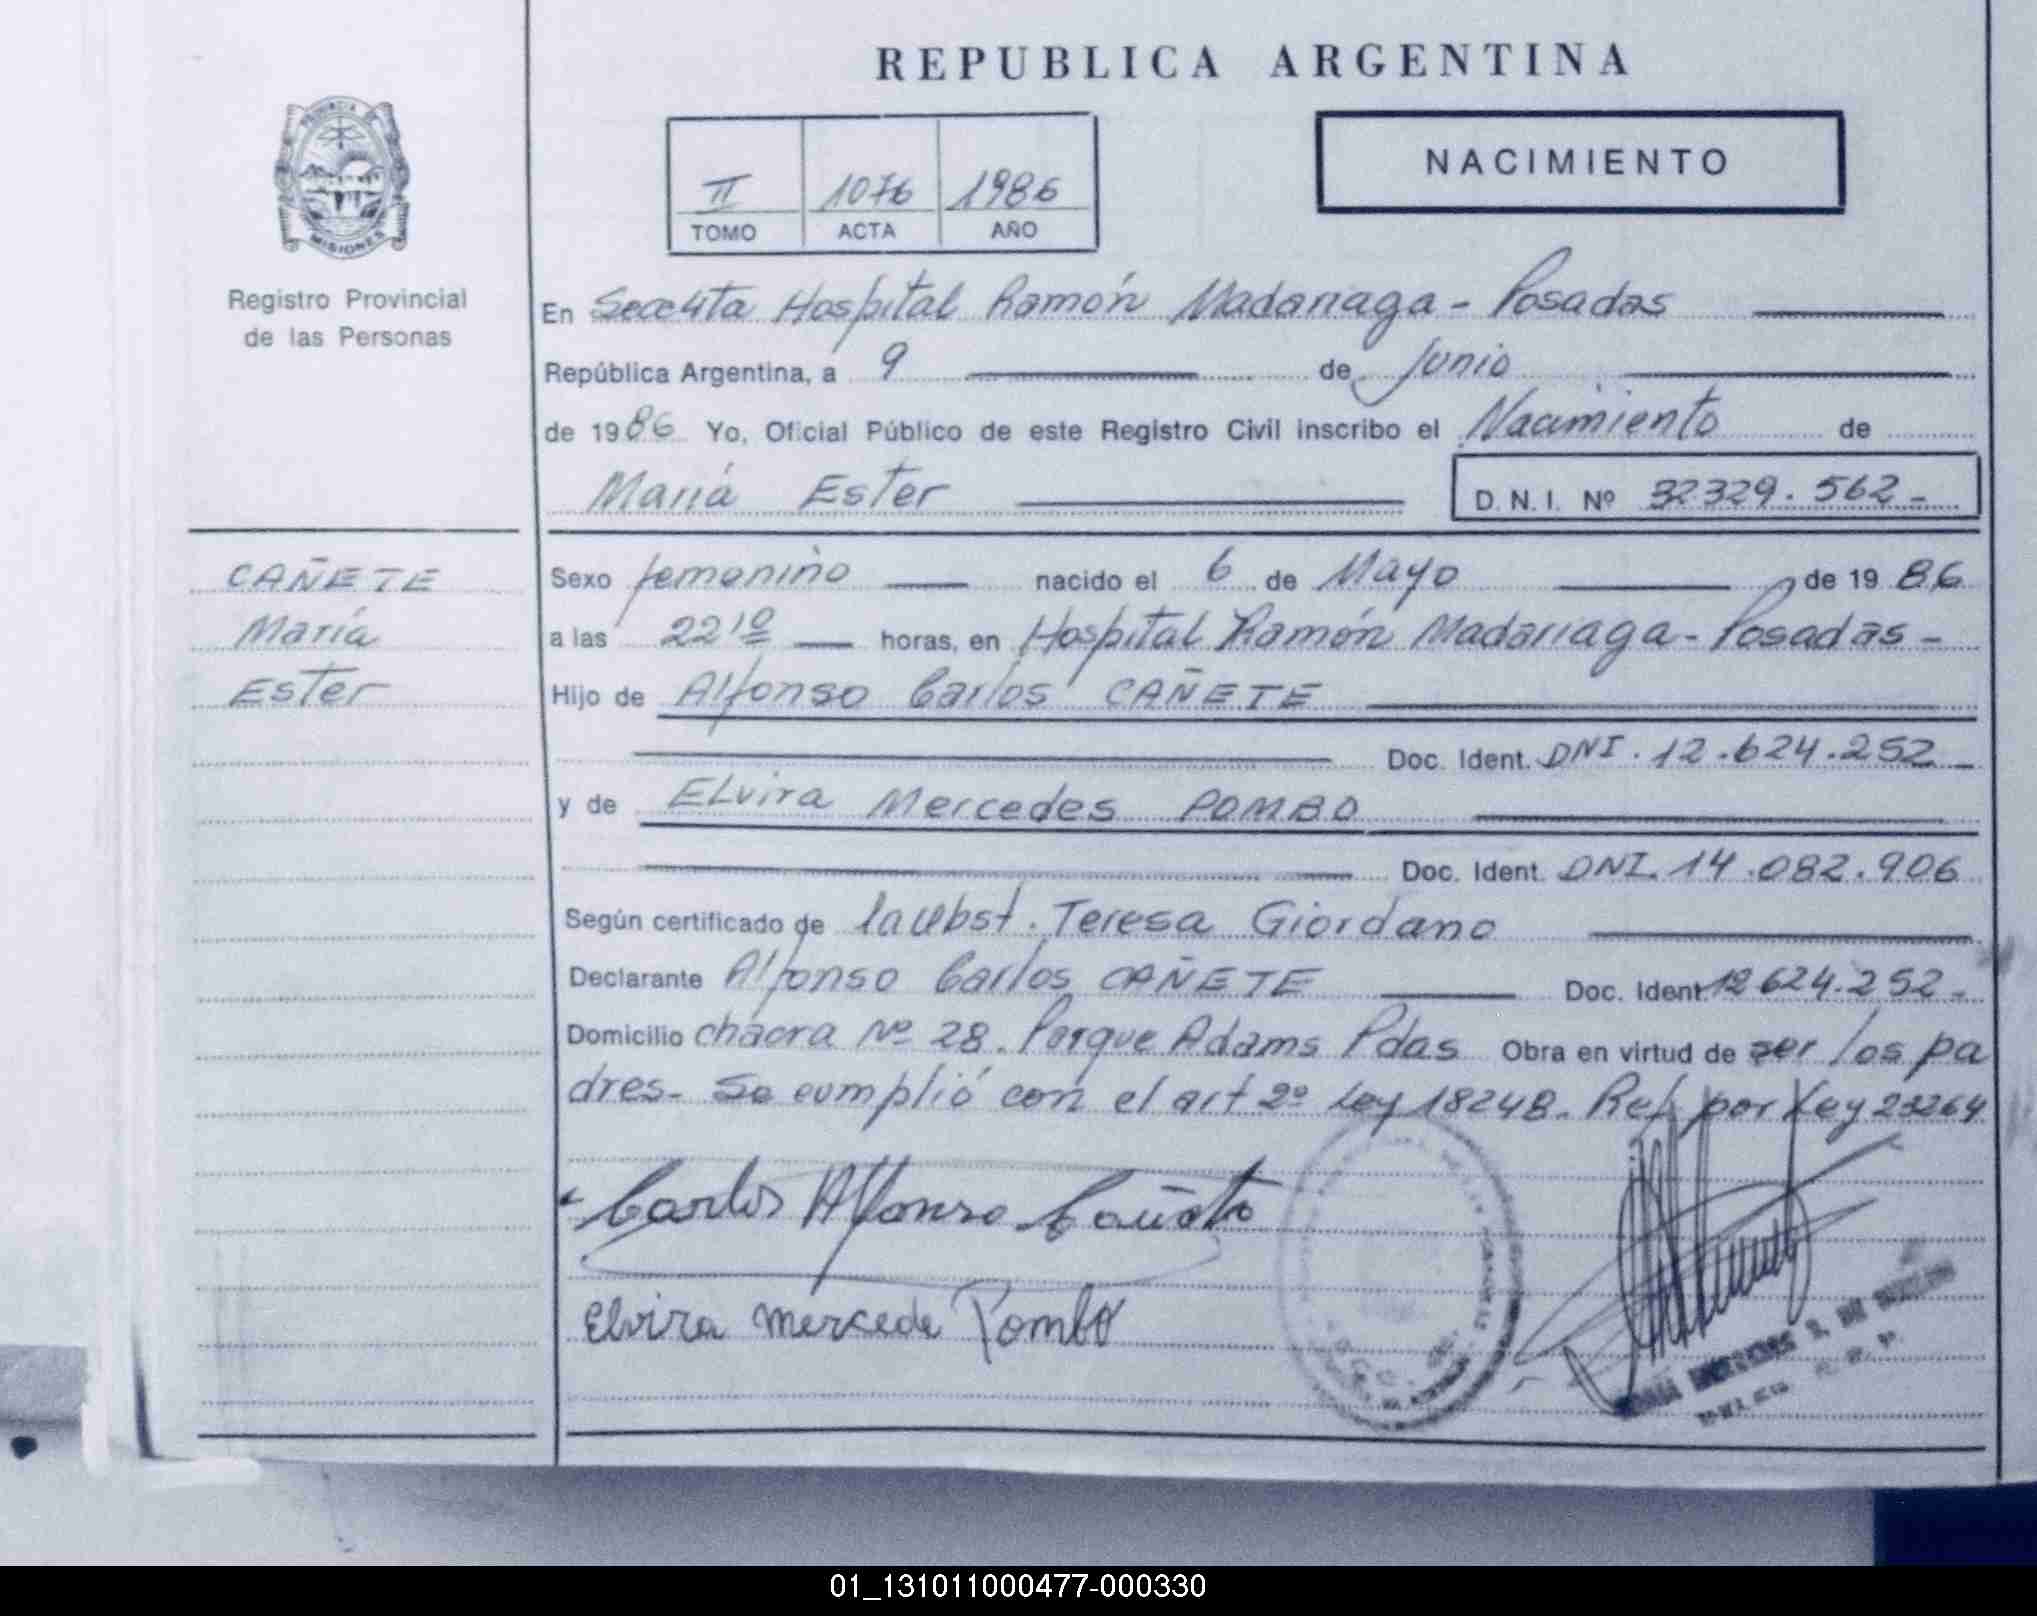 REPUBLICA ARGENTINA
PROVINCIA DE
MISIONES
Registro Provincial
de las Personas
II 1076 1986
TOMO ACTA AÑO
NACIMIENTO
En Hospital Ramón Madariaga - Posadas
República Argentina, a 9 de Junio
de 1986 Yo, Oficial Público de este Registro Civil inscribo el Nacimiento de
María Ester D. N. I. Nº 32329.562-
CAÑETE
María
Ester
Sexo femenino nacido el 6 de Mayo de 1986
a las 22'10 horas, en Hospital Ramón Madariaga - Posadas-
Hijo de Alfonso Carlos CAÑETE
Doc. Ident. DNI. 12.624.252
y de ELvira Mercedes POMBO
Doc. Ident. DNI. 14.082.906
Según certificado de la Teresa Giordano
Declarante Alfonso Carlos CAÑETE Doc. Ident 12624.252-
Domicilio chacra Nº 28. Parque Adams Pdas Obra en virtud de ser los pa
dres- Se cumplió con el art 2º Ley 18248. Ref. por Ley 23264
Carlos Alfonso Cañete
Elvira mercede Pombo
01_131011000477-000330